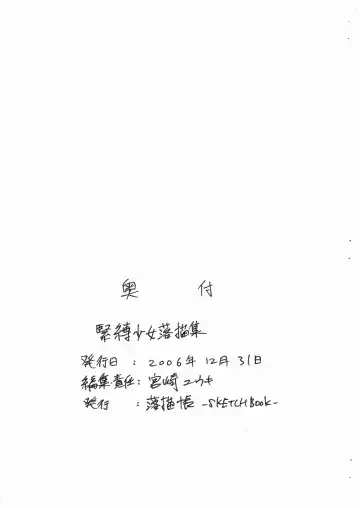 奥付
緊縛少女落描集
発行日 : 2006年12月31日
編集責任 : 宮崎ユウキ
発行 : 落描帳 -SKETCH BOOK-